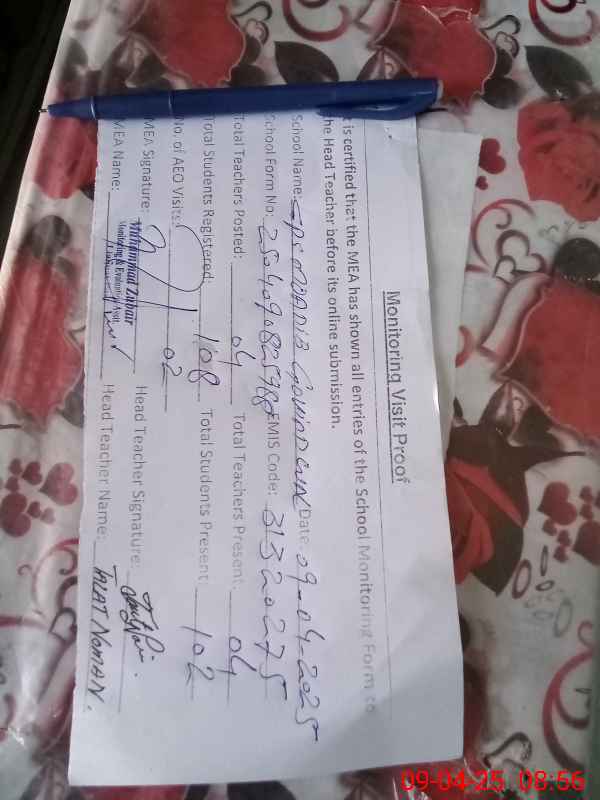 Monitoring Visit Proof
t is certified that the MEA has shown all entries of the School Monitoring Form to
he Head Teacher before its online submission.
School Name: GPS Date: 09-04-2025
School Form No: EMIS Code: 31320275
Total Teachers Posted: 04 Total Teachers Present: 04
Total Students Registered: 108 Total Students Present: 102
No. of AEO Visits: 02
MEA Signature: Head Teacher Signature:
MEA Name: Muhammad Zubair Head Teacher Name: TALAT NOMAN.
Monitoring & Evaluation Asstt.
09-04-25 08:56